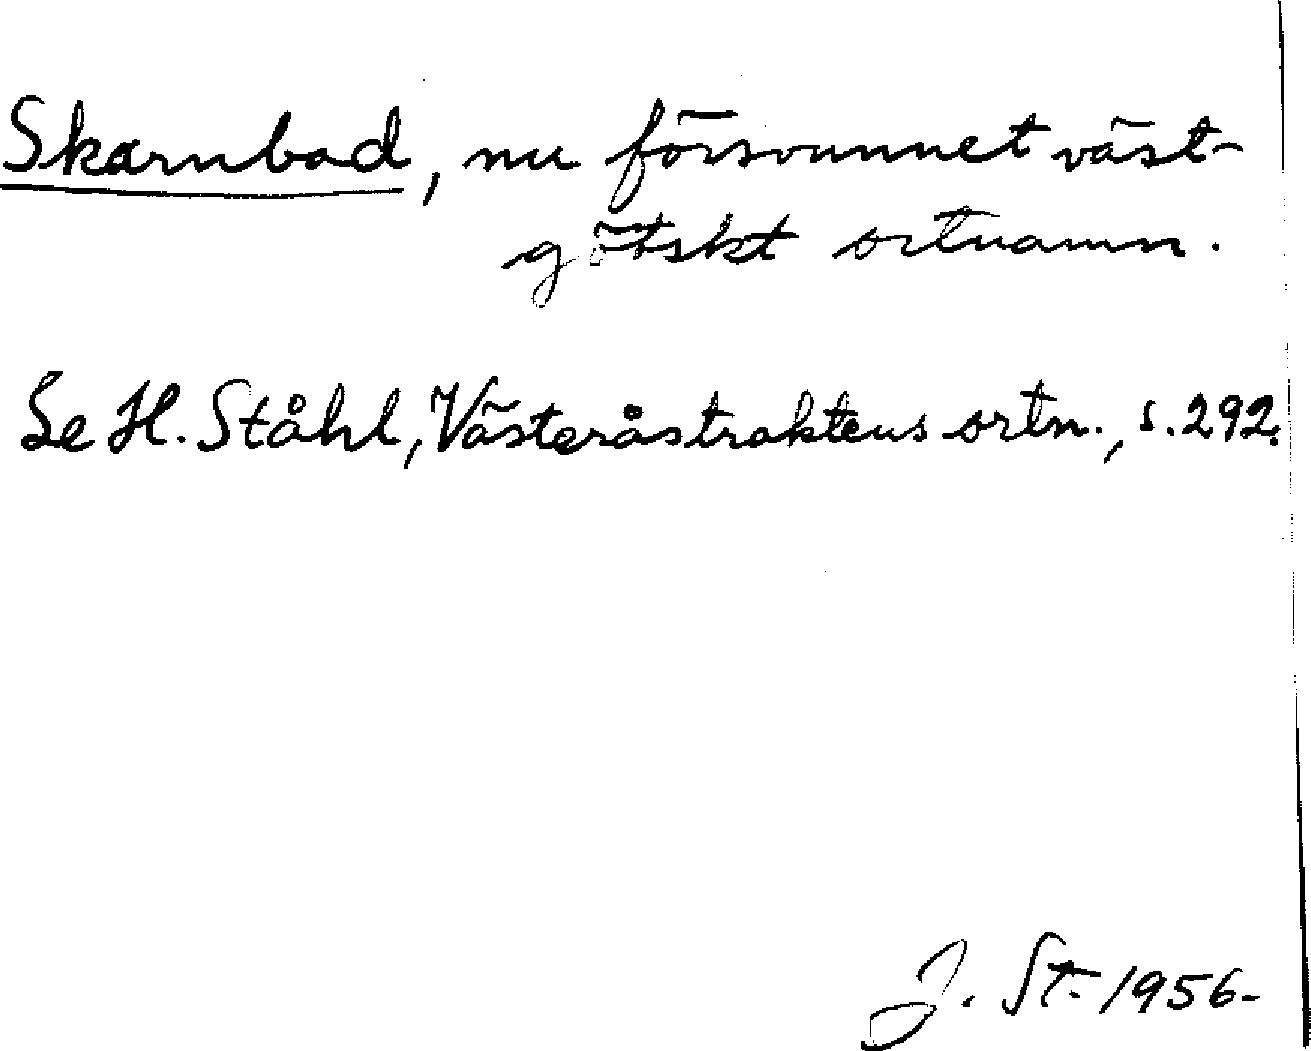 Skarnbod, nu försvunnet väst-
götskt ortnamn.
Se H. Ståhl, Västeråstraktens ortn., s. 292.
J. St. 1956.